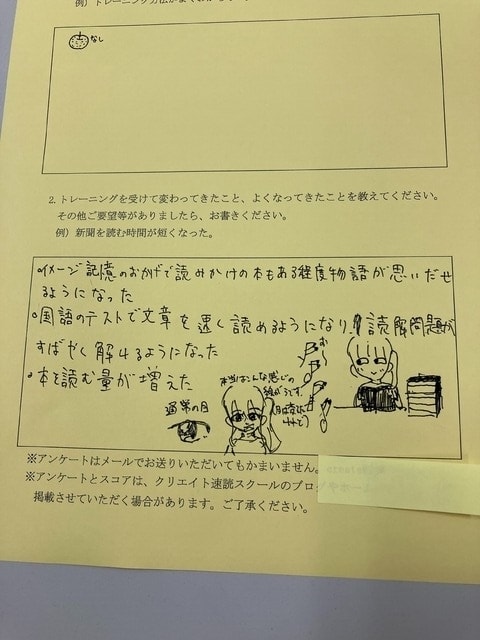 例）トレーニング方法がよくわからない
なし
2. トレーニングを受けて変わってきたこと、よくなってきたことを教えてください。
その他ご要望等がありましたら、お書きください。
例）新聞を読む時間が短くなった。
・イメージ記憶のおかげで読みかけの本もある程度物語が思いだせ
るようになった
・国語のテストで文章を速く読めるようになり、読解問題が
すばやく解けるようになった
・本を読む量が増えた
本当はこんな感じの
絵がうです。
通常の目
※アンケートはメールでお送りいただいてもかまいません。
※アンケートとスコアは、クリエイト速読スクールのブロ
掲載させていただく場合があります。ご了承ください。